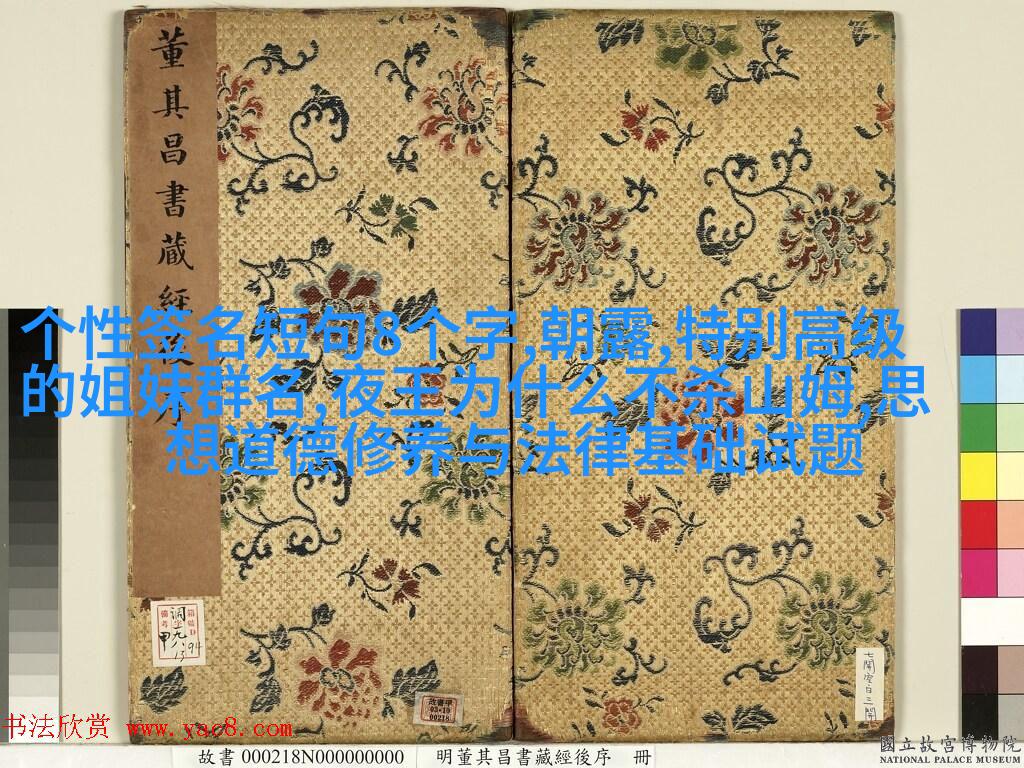 董其昌書藏經後序
个性签名短句8个字,朝露,特别高级
的姐妹群名,夜王为什么不杀山姆,思
想道德修养与法律基础试题
書法欣赏 www.yac8.com
故書 000218N000000000
明董其昌書藏經後序 冊
故書甲
03-10
00218
國立故宮博物院
NATIONAL PALACE MUSEUM